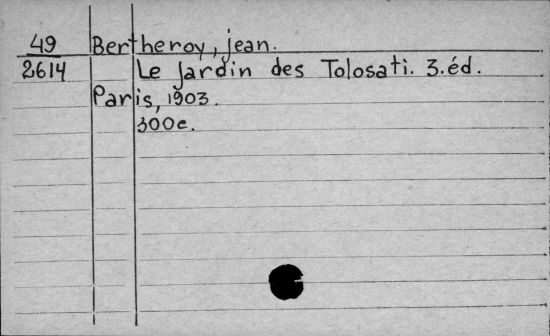 49 Bertheroy, jean.
2614 Le jardin des Tolosati. 3.éd.
Paris, 1903.
300c.